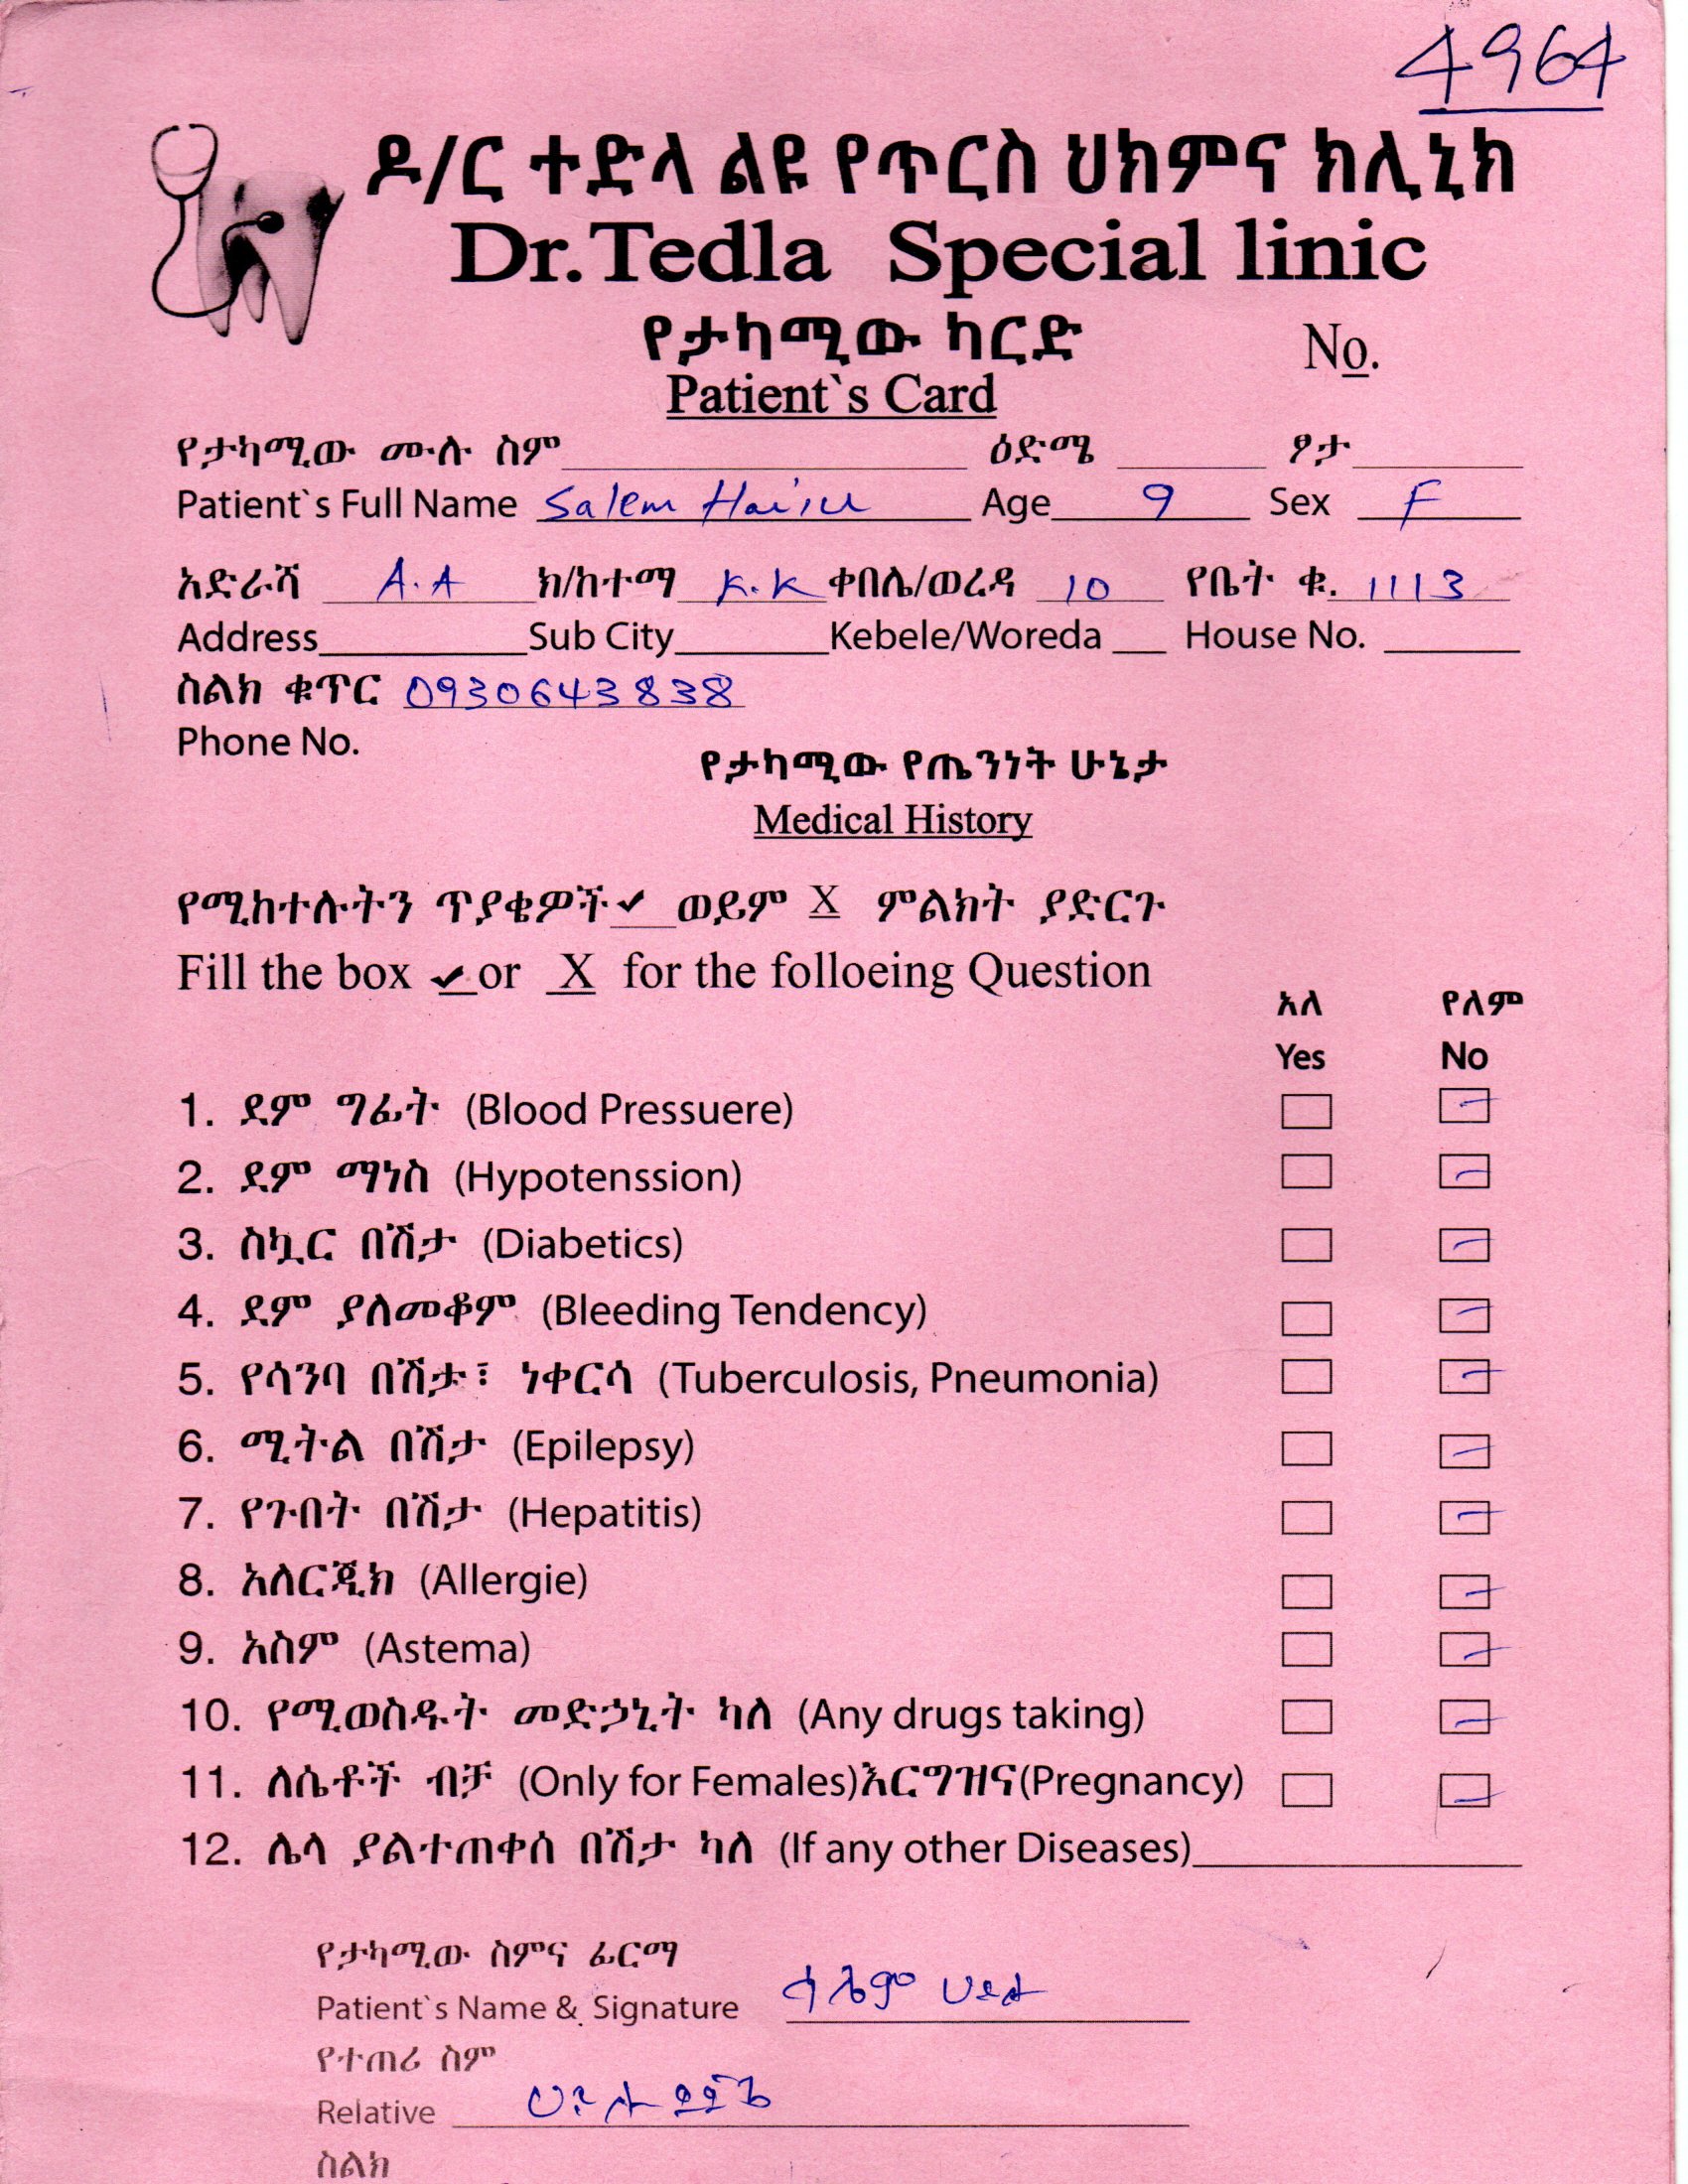 4964
ዶ/ር ተድላ ልዩ የጥርስ ህክምና ክሊኒክ
Dr.Tedla Special linic
የታካሚው ካርድ
No.
Patient`s Card
የታካሚው ሙሉ ስም ዕድሜ ፆታ
Patient`s Full Name Salem Age 9 Sex F
አድራሻ A.A ክ/ከተማ K.K ቀበሌ/ወረዳ 10 የቤት ቁ. 1113
Address Sub City Kebele/Woreda House No.
ስልክ ቁጥር 0930643838
Phone No.
የታካሚው የጤንነት ሁኔታ
Medical History
የሚከተሉትን ጥያቄዎች ✔ ወይም X ምልክት ያድርጉ
Fill the box ✔ or X for the folloeing Question
አለ የለም
Yes No
1. ደም ግፊት (Blood Pressuere)
2. ደም ማነስ (Hypotenssion)
3. ስኳር በሽታ (Diabetics)
4. ደም ያለመቆም (Bleeding Tendency)
5. የሳንባ በሽታ፣ ነቀርሳ (Tuberculosis, Pneumonia)
6. ሚትል በሽታ (Epilepsy)
7. የጉበት በሽታ (Hepatitis)
8. አለርጂክ (Allergie)
9. አስም (Astema)
10. የሚወስዱት መድኃኒት ካለ (Any drugs taking)
11. ለሴቶች ብቻ (Only for Females)እርግዝና(Pregnancy)
12. ሌላ ያልተጠቀሰ በሽታ ካለ (If any other Diseases)
የታካሚው ስምና ፊርማ
Patient`s Name & Signature ሳሌም
የተጠሪ ስም
Relative
ስልክ